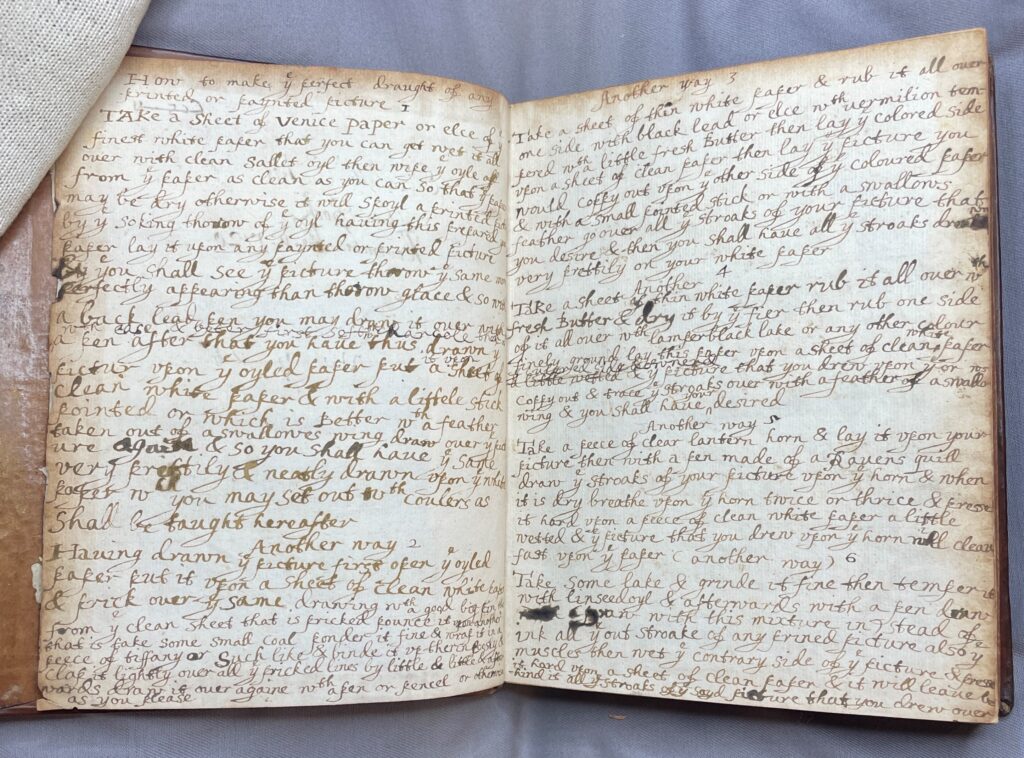 How to make yᵉ perfect draught of any
printed or paynted picture 1
TAke a Sheet of Venice Paper or elce of yᵉ
finest white paper that you can get wet it all
over with clean Sallet oyl then wipe yᵉ oyle off
from yᵉ paper as clean as you can So that yᵉ paper
may be dry otherwise it will Spoyl a printed
by yᵉ Soking thorow of yᵉ oyl having this prepared
paper lay it upon any paynted or printed pictur
& you Shall See yᵉ picture thorow yᵉ same
perfectly appearing than thorow glace & So with
a back lead pen you may draw it over with
a pen after that you have thus drawn yᵉ
pictur upon yᵉ oyled paper put it upon a Sheet of
Clean white paper & with a little Stick
pointed or which is Better wᵗʰ a feather
taken out of a Swallowes wing draw over yᵉ pict
ure again & So you Shall have yᵉ Same
very prettily & neatly drawn upon yᵉ white
paper wᶜʰ you may Set out wᵗʰ Coulers as
Shall be taught hereafter
Another way 2
Having drawn yᵉ picture first open yᵉ oyled
paper put it upon a Sheet of Clean white paper
& prick over yᵉ Same drawing wᵗʰ a good pin then
from yᵉ clean Sheet that is pricked pounce it upon another
that is take Some Small Coal ponder it fine & wrap it in a
peece of tiffany or Such like & binde it up therin
clap it lightly over all yᵉ pricked lines by little & little & after
wards draw it over againe wᵗʰ a pen or pencel or otherwise
as you please
Another way 3
Take a sheet of thin white paper & rub it all over
one Side with black lead or else wᵗʰ vermilion tem-
pered wᵗʰ a little fresh Butter then lay yᵉ colored Side
upon a Sheet of clean paper then lay yᵉ picture you
would Coppy out upon yᵉ other Side of yᵉ coloured paper
& with a Small pointed stick or with a Swallows
feather go over all yᵉ Stroaks of your picture that
you desire & then you Shall have all yᵉ Stroaks drawn
very prettily on your white paper
Another 4
Take a Sheet of thin white paper rub it all over wᵗʰ
fresh Butter & dry it by yᵉ fier then rub one Side
of it all over wᵗʰ lamperblack lake or any other Colour
finely ground lay this paper upon a Sheet of clean white paper
Coppy out & trace yᵉ Stroaks over with a feather of a Swallows
wing & you Shall have your desired
Another way 5
Take a peece of clear lantern horn & lay it upon your
picture then with a pen made of a Ravens quill
draw yᵉ Stroaks of your picture upon yᵉ horn & when
it is dry breathe upon yᵉ horn twice or thrice & press
it hard upon a peece of clean white paper a little
wetted & yᵉ picture that you drew upon yᵉ horn will clean
fast upon yᵉ paper ( another way ) 6
Take Some lake & grinde it fine then temper it
with linseedoyl & afterwards with a pen draw
with this mixture in Stead of
ink all yᵉ out Stroake of any prined picture also yᵉ
muscles then wet yᵉ contrary Side of yᵉ picture & press
it hard upon a Sheet of clean paper & it will leave be
hind it all yᵉ Stroaks of yᵉ Sayd picture that you drew over